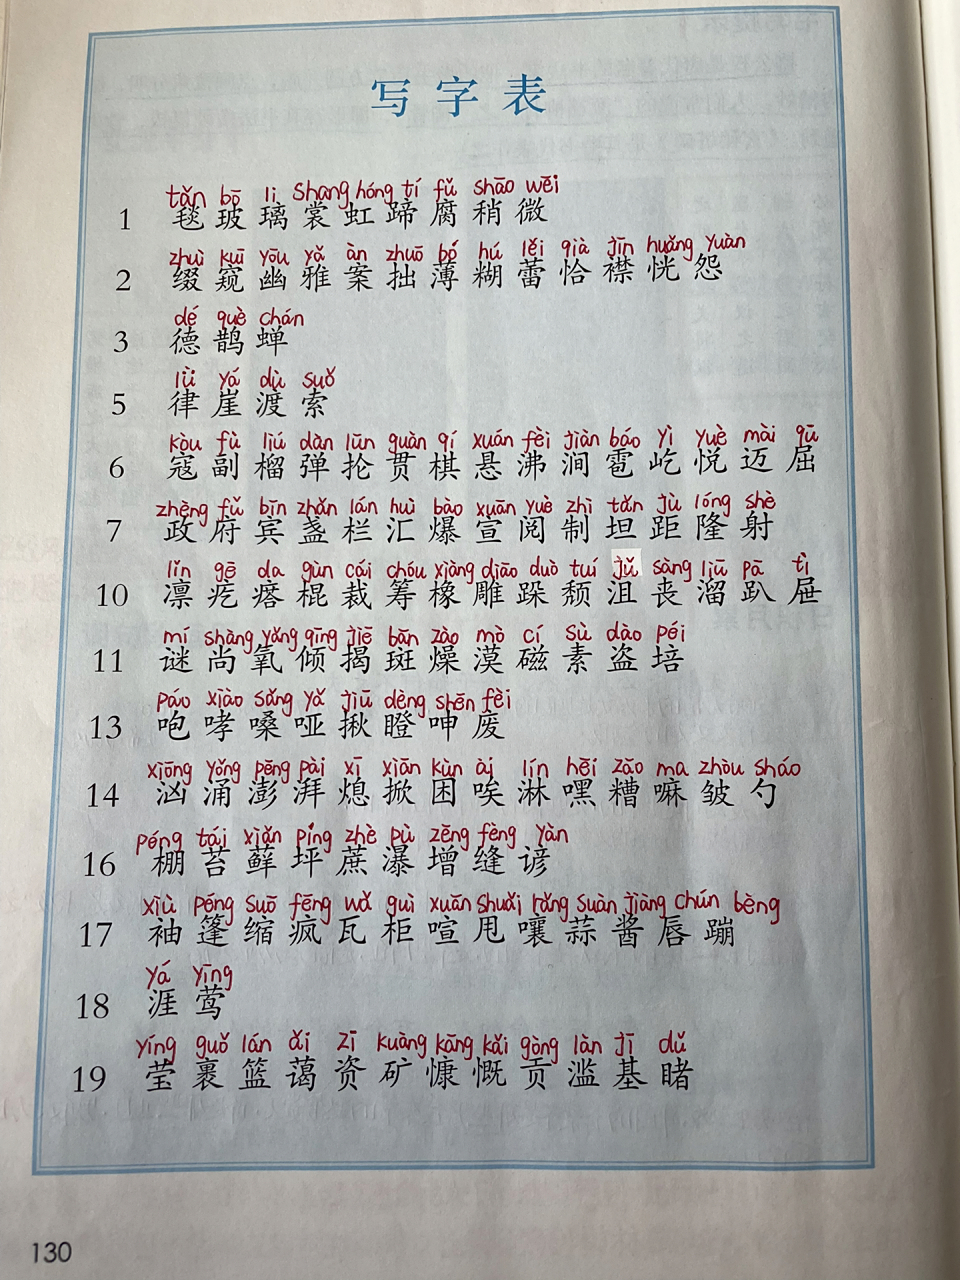 写字表
tǎn bō li shang hóng tí fǔ shāo wēi
1 毯玻璃裳虹蹄腐稍微
zhuì kuī yōu yǎ àn zhuō bó hú lěi qià jīn huǎng yuàn
2 缀窥幽雅案拙薄糊蕾恰襟恍怨
dé què chán
3 德鹊蝉
lǜ yá dù suǒ
5 律崖渡索
kòu fù liú dàn lūn guàn qí xuán fèi jiàn báo yì yuè mài qū
6 寇副榴弹抡贯棋悬沸涧雹屹悦迈屈
zhèng fǔ bīn zhǎn lán huì bào xuān yuè zhì tǎn jù lóng shè
7 政府宾盏栏汇爆宣阅制坦距隆射
lǐn gē da gùn cái chóu xiàng diāo duò tuí jǔ sàng liū pā tì
10 凛疙瘩棍裁筹橡雕跺颓沮丧溜趴屉
mí shàng yǎng qīng jiē bān zào mò cí sù dào péi
11 谜尚氧倾揭斑燥漠磁素盗培
páo xiào sǎng yǎ jiū dèng shēn fèi
13 咆哮嗓哑揪瞪呻废
xiōng yǒng pēng pài xī xiān kùn ài lín hēi zāo ma zhòu sháo
14 汹涌澎湃熄掀困唉淋嘿糟嘛皱勺
péng tái xiǎn píng zhè pù zēng fèng yàn
16 棚苔藓坪蔗瀑增缝谚
xiù péng suō fēng wǎ guì xuān shuǎi rǎng suàn jiàng chún bèng
17 袖篷缩疯瓦柜喧甩嚷蒜酱唇蹦
yá yīng
18 涯莺
yíng guǒ lán ǎi zī kuàng kāng kǎi gòng làn jī dǔ
19 莹裹篮蔼资矿慷慨贡滥基睹
130